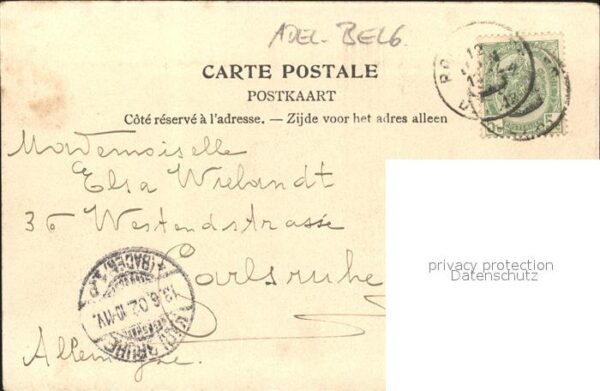 ADEL- BELG.
CARTE POSTALE
POSTKAART
Côté réservé à l'adresse. — Zijde voor het adres alleen
Mademoiselle
Elsa Wielandt
36 Westendstrasse
Carlsruhe
privacy protection
Datenschutz
(BADEN)
13.6.02.10-11V.
KARLSRUHE
Allemagne.
5